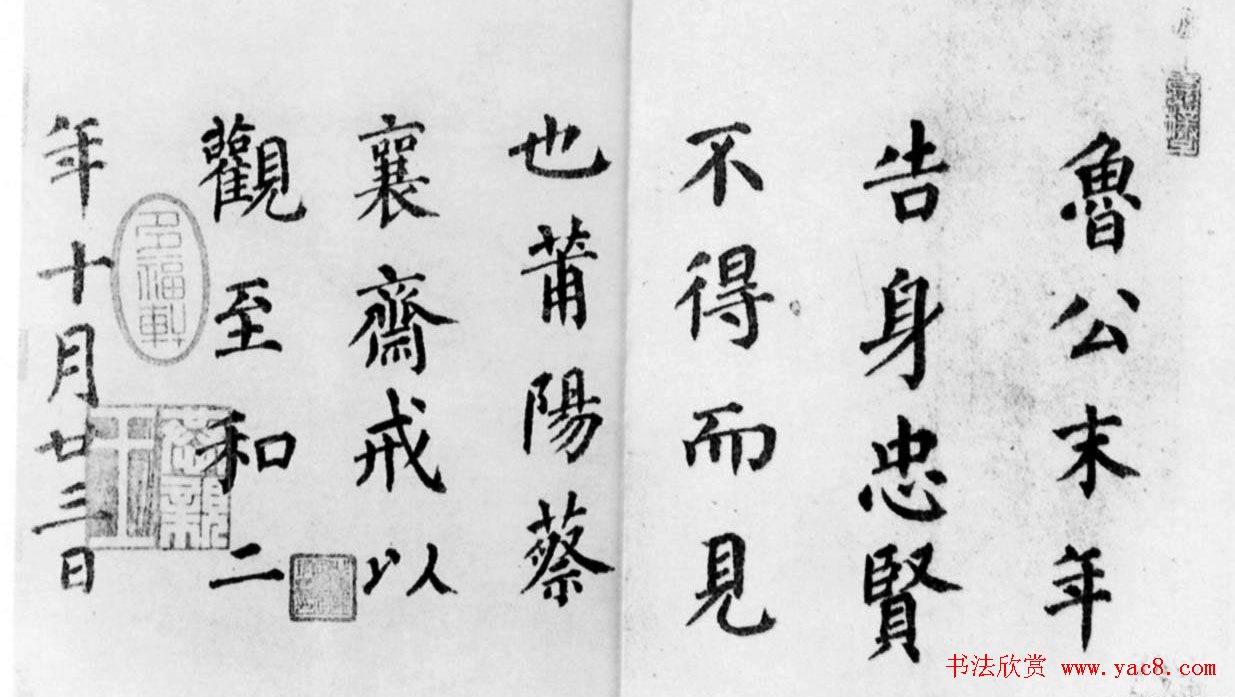 魯公末年
告身忠賢
不得而見
也莆陽蔡
襄齋戒以
觀至和二
年十月廿三日
多福軒
恭親王
书法欣赏 www.yac8.com